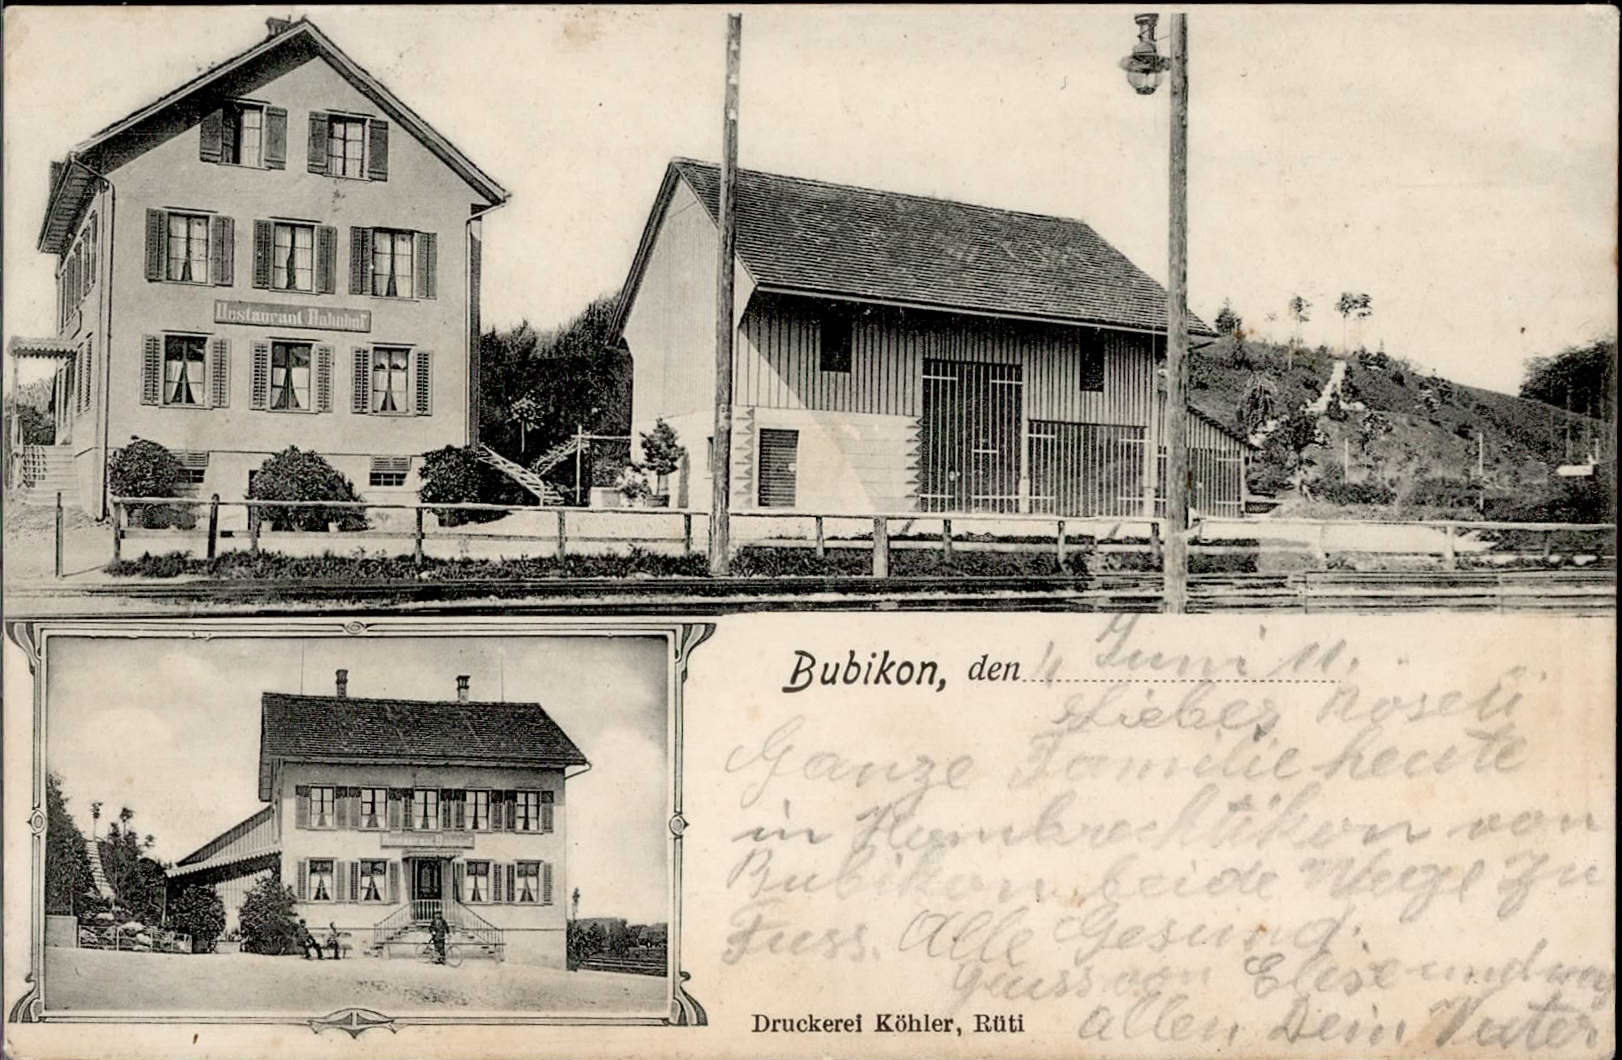 Restaurant Bahnhof
Bubikon, den 4 Juni 11.
Liebes Roseli
Ganze Familie heute
in Hombrechtikon von
Bubikon beide Wege zu
Fuss. Alle Gesund.
Gruss von Elise und von
allen Dein Vater
Druckerei Köhler, Rüti